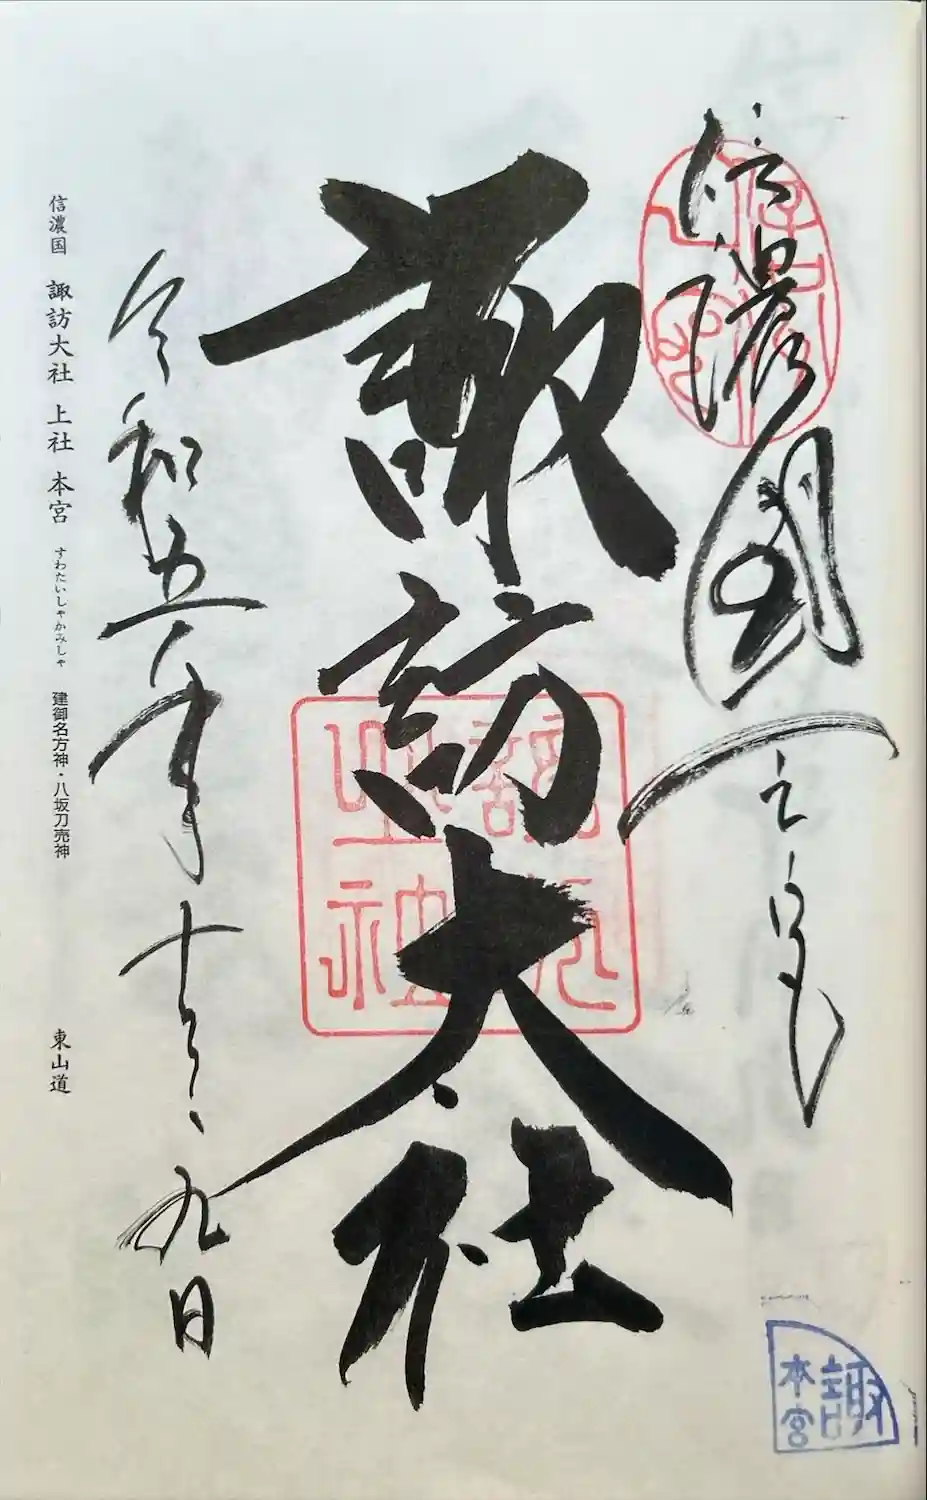 信濃國一之宮
諏訪大社
令和五年十二月九日
信濃国 諏訪大社 上社 本宮 すわたいしゃかみしゃ 建御名方神・八坂刀売神 東山道
諏訪
本宮